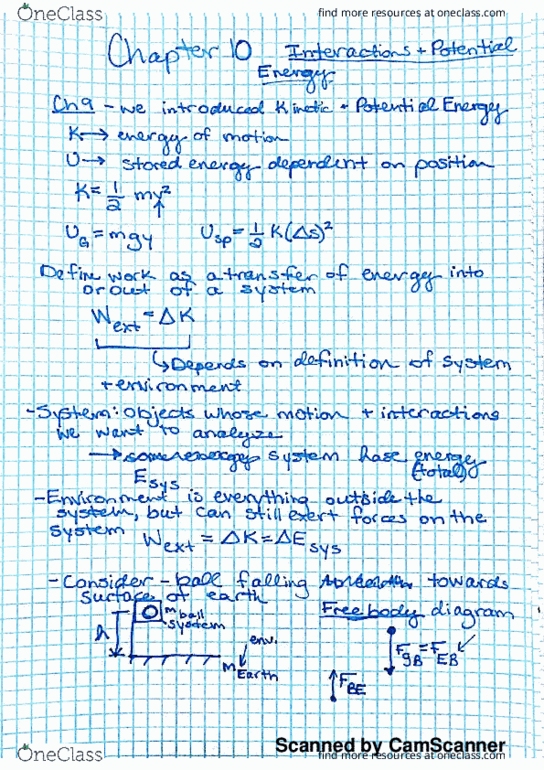 OneClass
find more resources at oneclass.com
Chapter 10 Interactions + Potential
Energy
Ch 9 - we introduced Kinetic + Potential Energy
K → energy of motion
U → stored energy dependent on position
K = 1/2 mv²
U_G = mgy U_sp = 1/2 K(Δs)²
Define work as a transfer of energy into
or out of a system
W_ext = ΔK
↳ Depends on definition of system
+ environment
- System: objects whose motion + interactions
we want to analyze
→ system has energy
E_sys (total)
- Environment is everything outside the
system, but can still exert forces on the
system W_ext = ΔK = ΔE_sys
- Consider - ball falling towards
surface of earth
Free body diagram
h m_ball
system
env.
m_Earth
F_gB = F_EB
F_BE
Scanned by CamScanner
OneClass
find more resources at oneclass.com